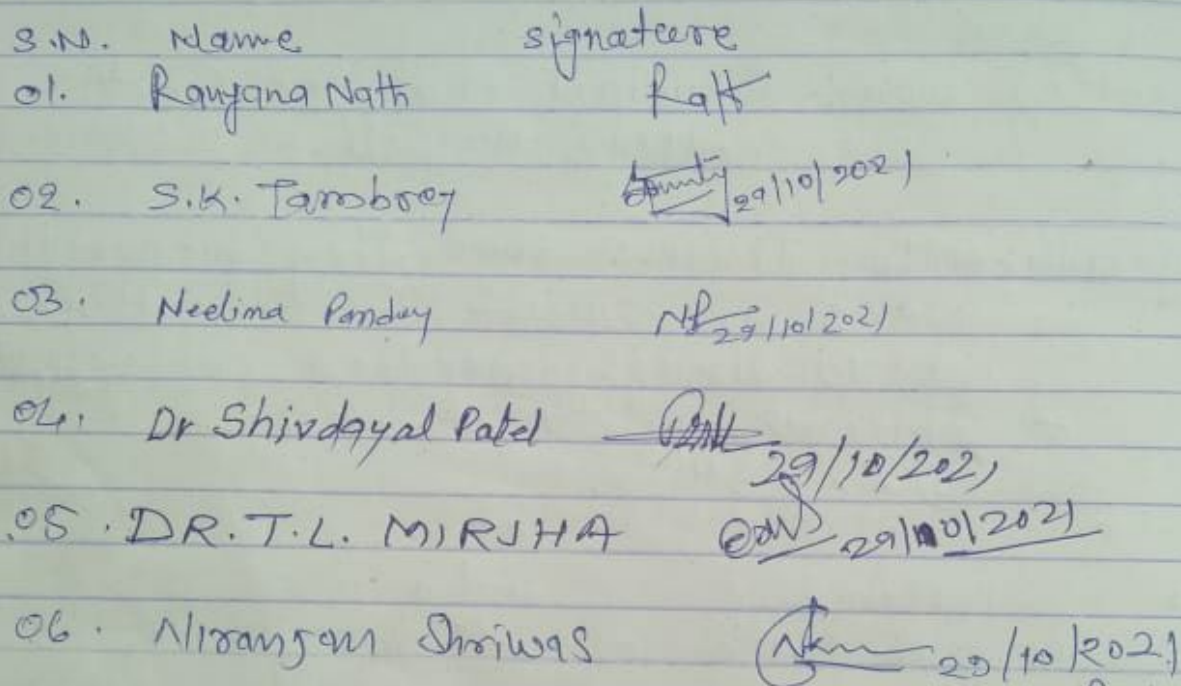 S.N. Name signature
01. Ranjana Nath
02. S.K. Tambrey 29/10/2021
03. Neelima Pandey 29/10/2021
04. Dr Shivdayal Patel 29/10/2021
05. DR. T. L. MIRJHA 29/10/2021
06. Niranjan Shriwas 29/10/2021